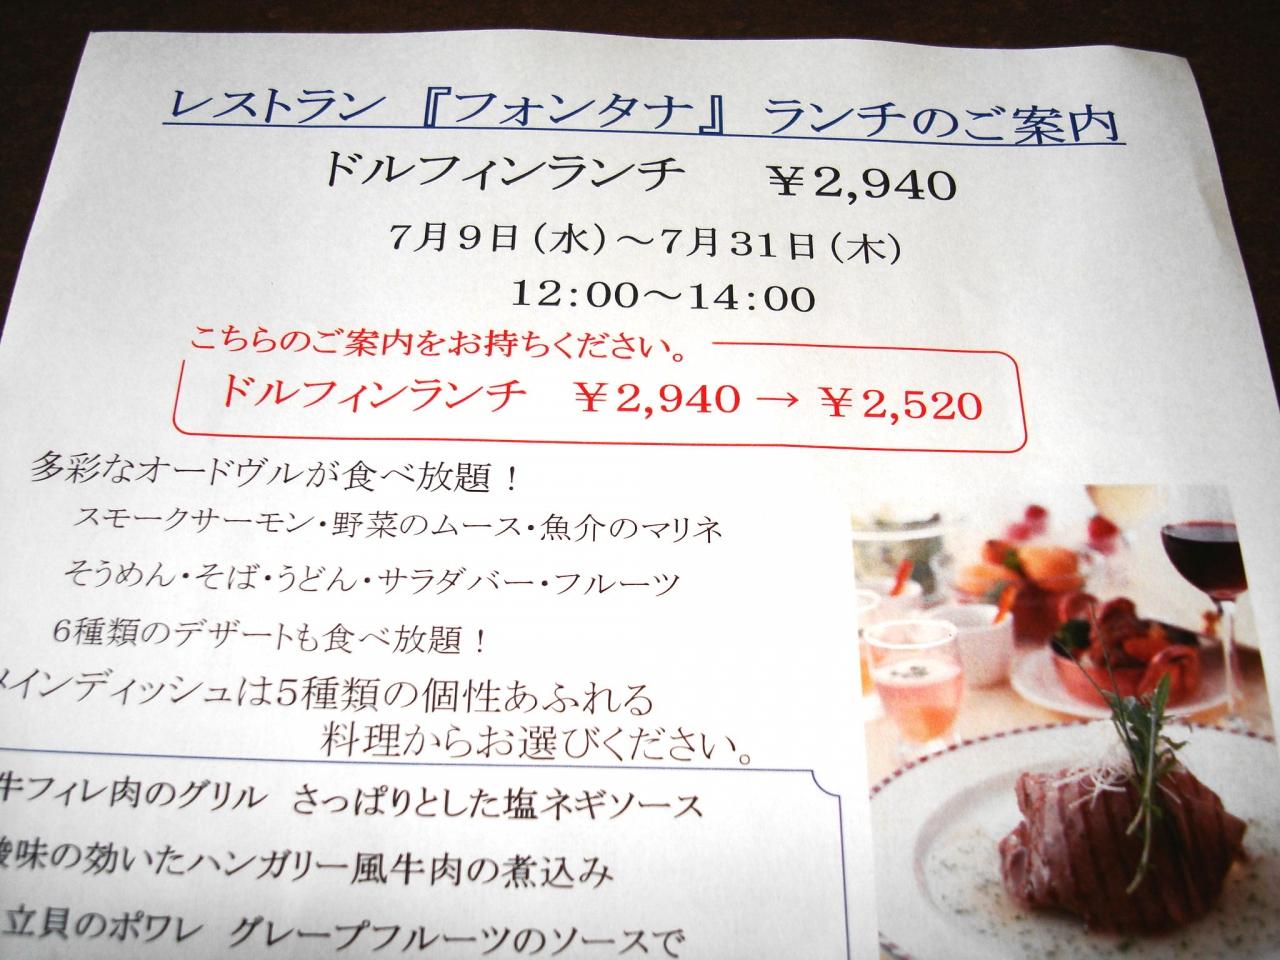 レストラン『フォンタナ』ランチのご案内
ドルフィンランチ　￥2,940
7月9日（水）～7月31日（木）
12：00～14：00
こちらのご案内をお持ちください。
ドルフィンランチ　￥2,940 → ￥2,520
多彩なオードヴルが食べ放題！
スモークサーモン・野菜のムース・魚介のマリネ
そうめん・そば・うどん・サラダバー・フルーツ
6種類のデザートも食べ放題！
メインディッシュは5種類の個性あふれる
料理からお選びください。
牛フィレ肉のグリル　さっぱりとした塩ネギソース
酸味の効いたハンガリー風牛肉の煮込み
立貝のポワレ　グレープフルーツのソースで